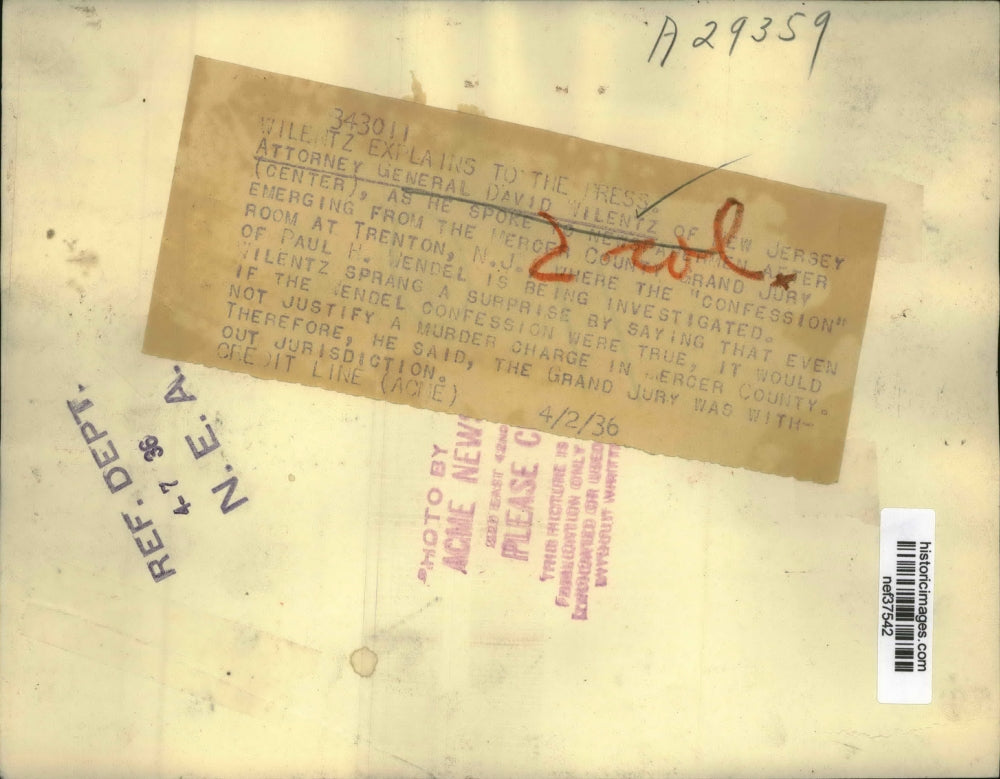 A29359
343011
WILENTZ EXPLAINS TO THE PRESS.
ATTORNEY GENERAL DAVID WILENTZ OF NEW JERSEY
(CENTER), AS HE SPOKE TO NEWSPAPERMEN AFTER
EMERGING FROM THE MERCER COUNTY GRAND JURY
ROOM AT TRENTON, N.J. WHERE THE "CONFESSION"
OF PAUL H. WENDEL IS BEING INVESTIGATED.
WILENTZ SPRANG A SURPRISE BY SAYING THAT EVEN
IF THE WENDEL CONFESSION WERE TRUE, IT WOULD
NOT JUSTIFY A MURDER CHARGE IN MERCER COUNTY.
THEREFORE, HE SAID, THE GRAND JURY WAS WITH-
OUT JURISDICTION.
CREDIT LINE (ACME) 4/2/36
2 col.
REF. DEPT.
4-7 36
N. E. A.
PHOTO BY
ACME NEW
EAST 42ND
PLEASE C
THIS PICTURE IS
PUBLICATION ONLY
OR USED
WITHOUT WRITT
historicimages.com
nef37542